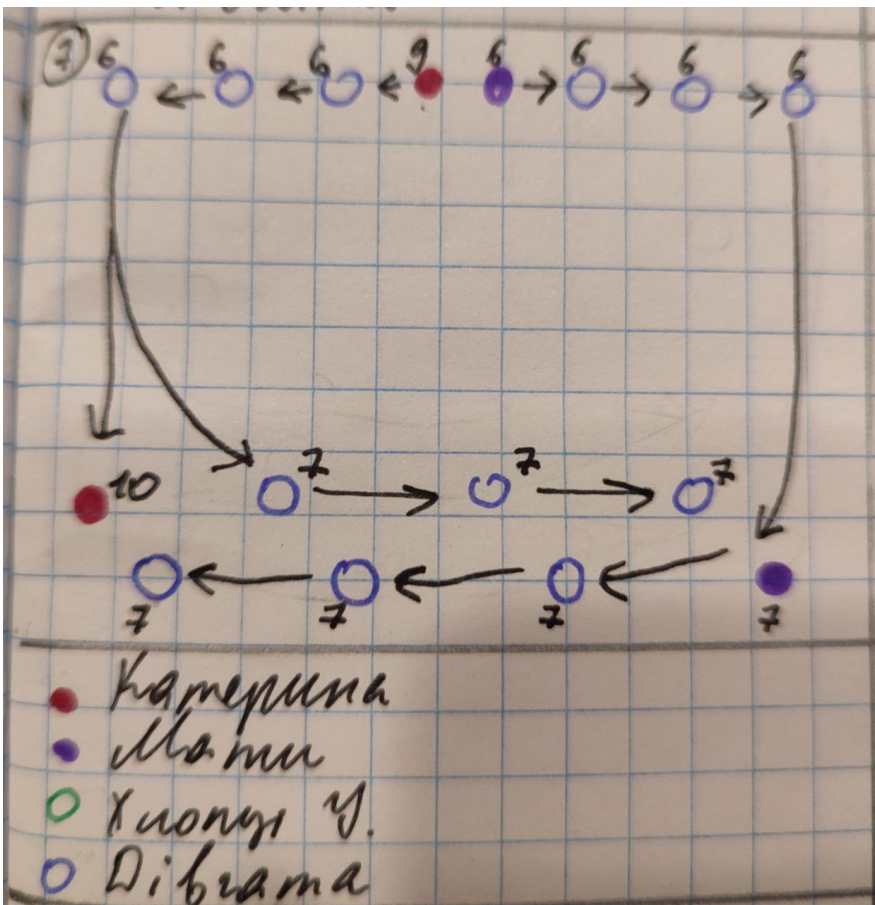 7 6 6 6 9 6 6 6 6
10 7 7 7
7 7 7 7
Катерина
Мати
Хлопці У.
Дівчата